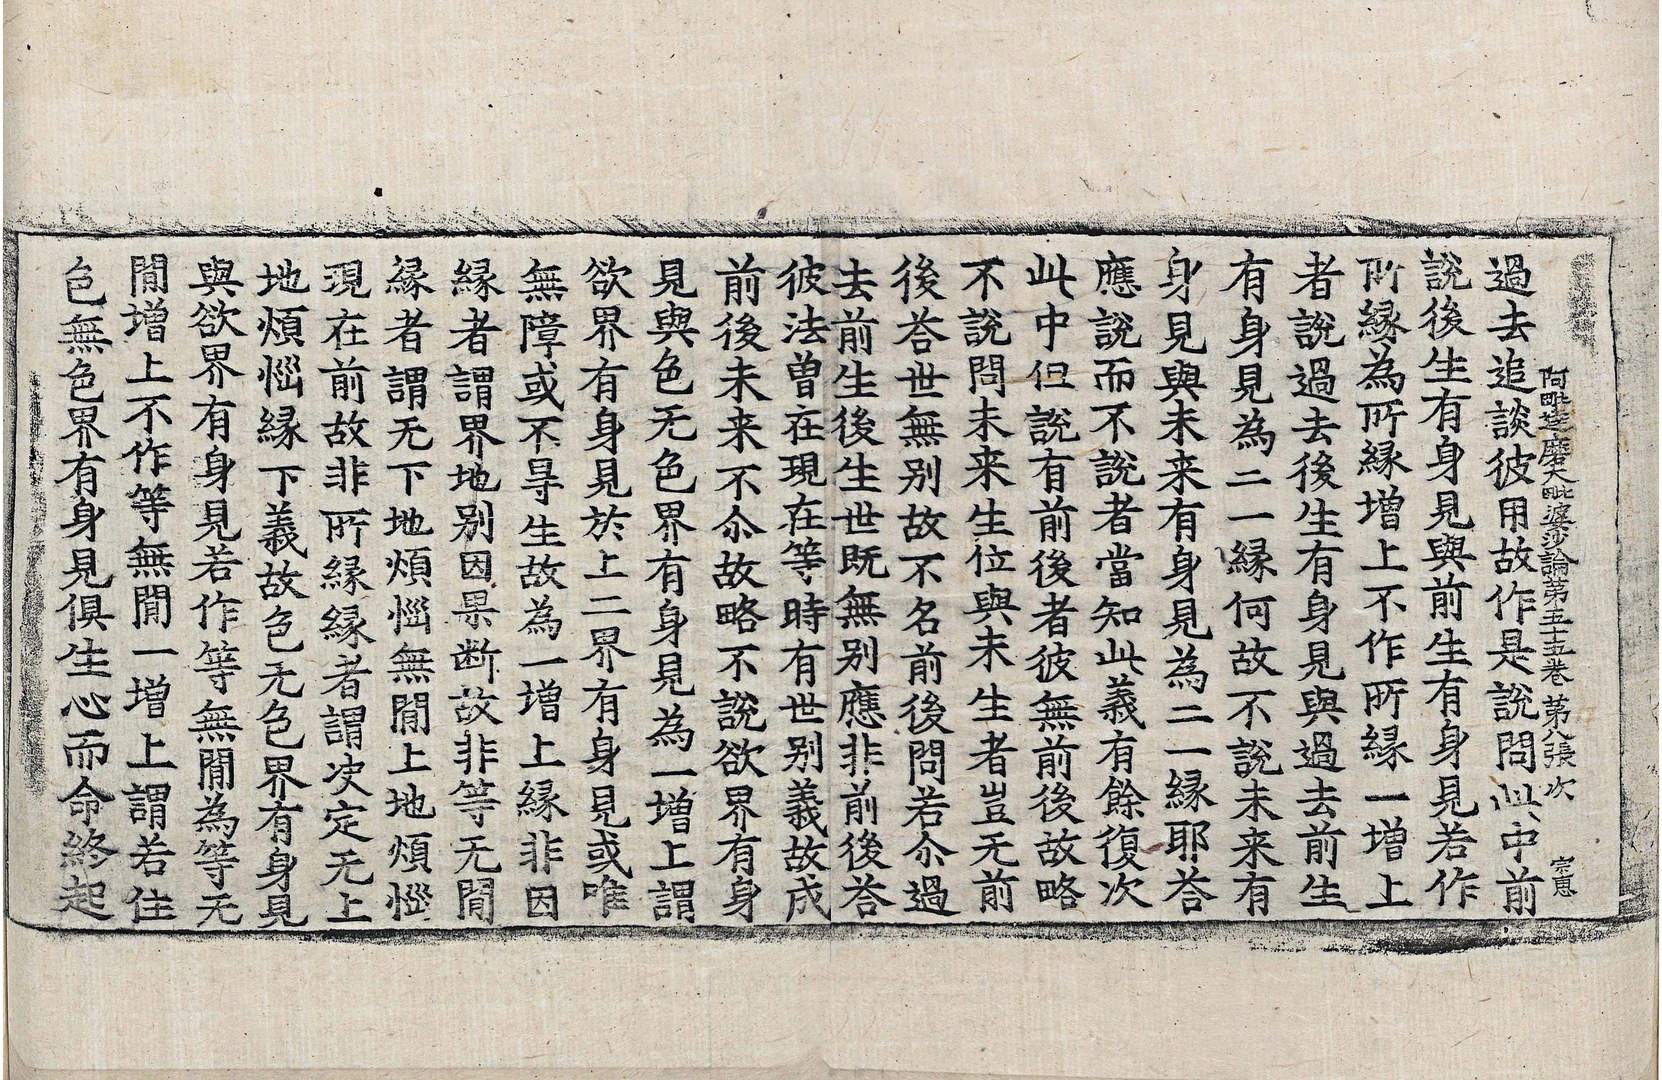 阿毗達磨大毗婆沙論第五十五卷 第八張 次 宗惠
過去追談彼用故作是說問此中前
說後生有身見與前生有身見若作
所緣為所緣增上不作所緣一增上
者說過去後生有身見與過去前生
有身見為二一緣何故不說未来有
身見與未来有身見為二一緣耶荅
應說而不說者當知此義有餘復次
此中但說有前後者彼無前後故略
不說問未来生位與未生者豈无前
後荅世無別故不名前後問若尒過
去前生後生世既無別應非前後荅
彼法曾在現在等時有世別義故成
前後未来不尒故略不說欲界有身
見與色无色界有身見為一增上謂
欲界有身見於上二界有身見或唯
無障或不㝵生故為一增上緣非因
緣者謂界地別因果断故非等无間
緣者謂无下地煩惱無間上地煩惱
現在前故非所緣緣者謂决定无上
地煩惱緣下義故色无色界有身見
與欲界有身見若作等無間為等无
間增上不作等無間一增上謂若住
色無色界有身見俱生心而命終起